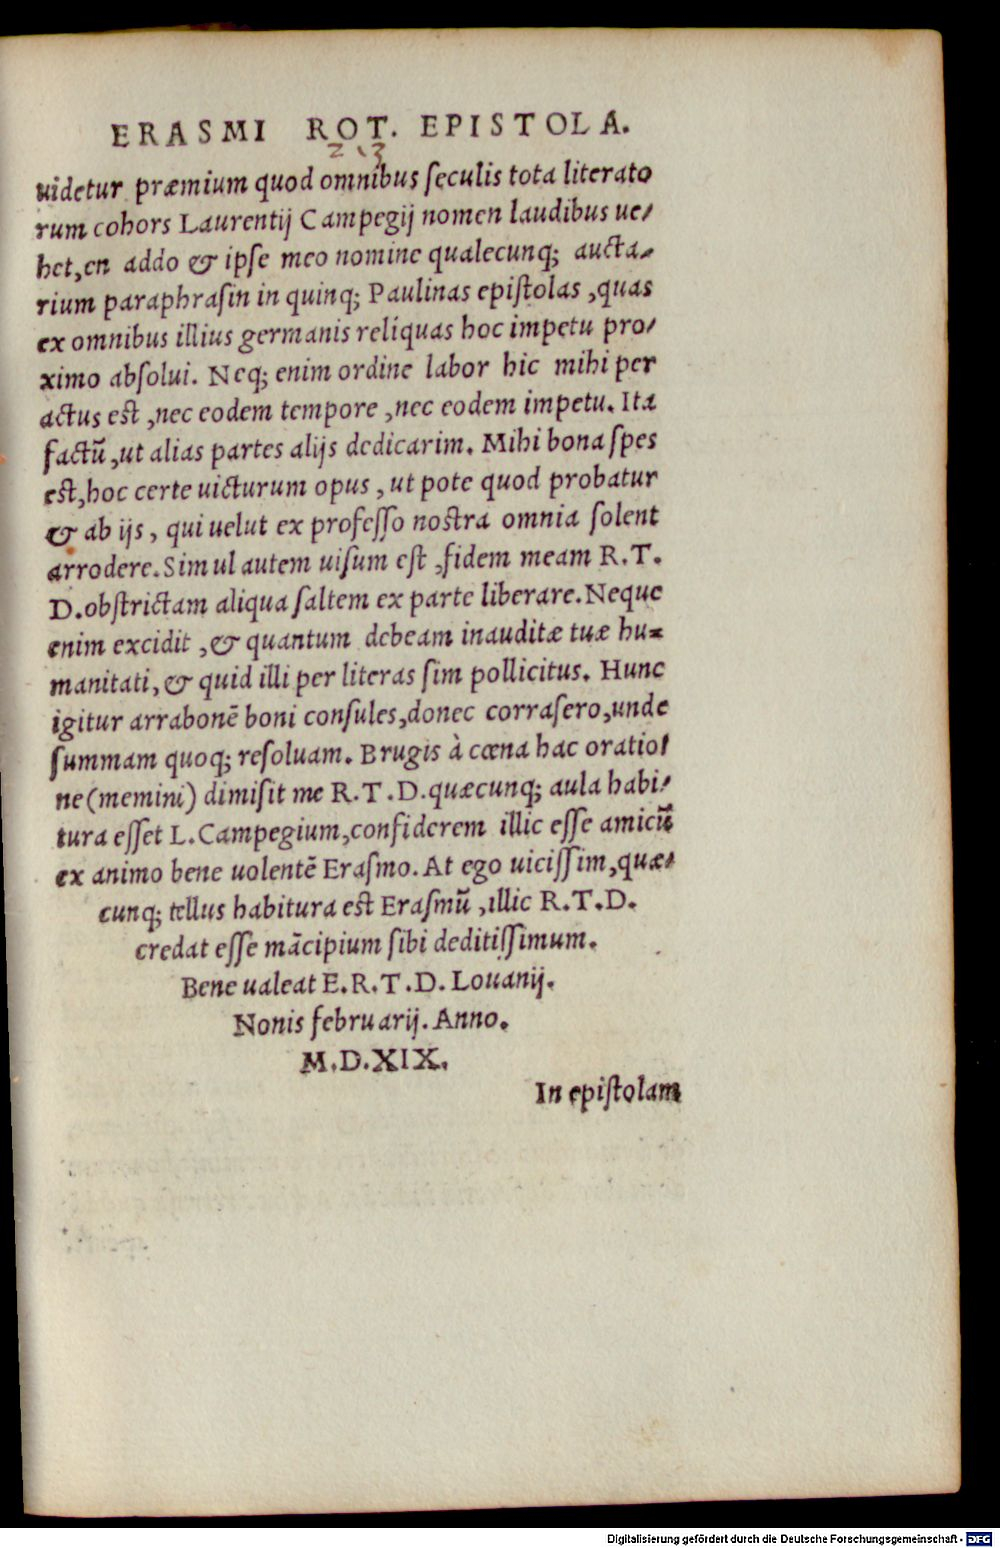 ERASMI ROT. EPISTOLA.
213
uidetur præmium quod omnibus ſeculis tota literato
rum cohors Laurentij Campegij nomen laudibus ue/
het,en addo & ipſe meo nomine qualecunq; aucta/
rium paraphraſin in quinq; Paulinas epiſtolas ,quas
ex omnibus illius germanis reliquas hoc impetu pro/
ximo abſolui. Neq; enim ordine labor hic mihi per
actus est ,nec eodem tempore ,nec eodem impetu. Ita
factū ,ut alias partes alijs dedicarim. Mihi bona ſpes
est,hoc certe uicturum opus , ut pote quod probatur
& ab ijs , qui uelut ex profeſſo nostra omnia ſolent
arrodere. Simul autem uiſum est ,fidem meam R.T.
D.obstrictam aliqua ſaltem ex parte liberare. Neque
enim excidit ,& quantum debeam inauditæ tuæ hu=
manitati, & quid illi per literas ſim pollicitus. Hunc
igitur arrabonē boni conſules,donec corraſero,unde
ſummam quoq; reſoluam. Brugis à cœna hac oratio/
ne(memini) dimiſit me R.T.D.quæcunq; aula habi/
tura eſſet L.Campegium,confiderem illic eſſe amicū
ex animo bene uolentē Eraſmo. At ego uiciſſim,quæ/
cunq; tellus habitura est Eraſmū ,illic R.T.D.
credat eſſe mācipium ſibi deditiſſimum.
Bene ualeat E.R.T.D. Louanij.
Nonis februarij. Anno.
M.D.XIX.
In epiſtolam
Digitalisierung gefördert durch die Deutsche Forschungsgemeinschaft - DFG